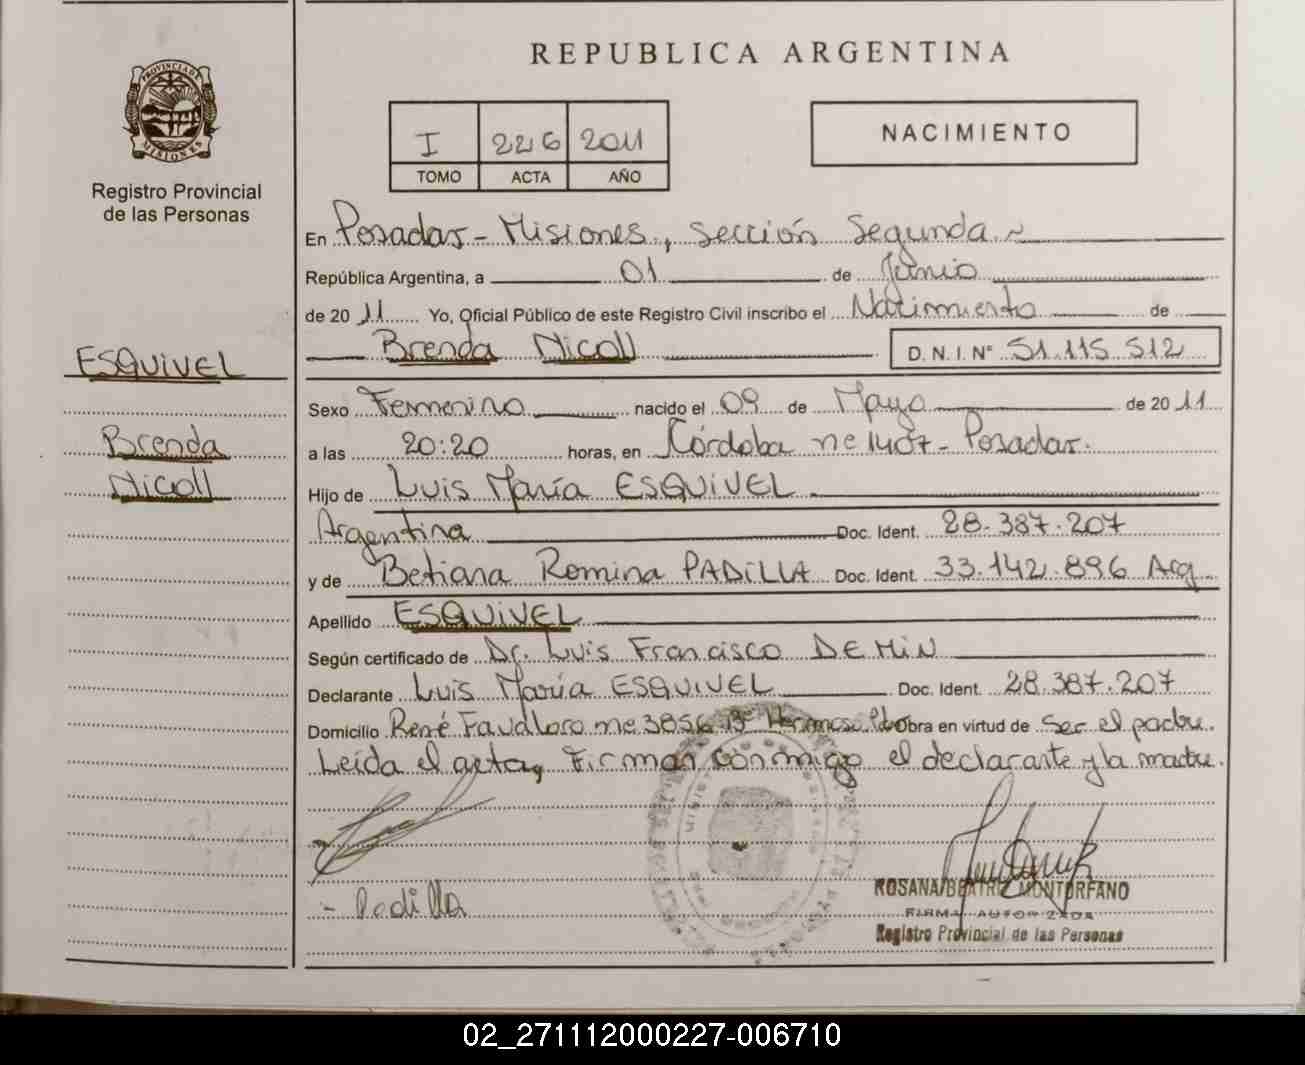 REPUBLICA ARGENTINA
PROVINCIA DE MISIONES
Registro Provincial
de las Personas
I 226 2011
TOMO ACTA AÑO
NACIMIENTO
En Posadas - Misiones, sección Segunda
República Argentina, a 01 de Junio
de 2011 Yo, Oficial Público de este Registro Civil inscribo el Nacimiento de
Brenda Nicoll D.N.I. Nº 51.115.512
ESQUIVEL
Brenda
Nicoll
Sexo Femenino nacido el 09 de Mayo de 2011
a las 20:20 horas, en Córdoba nº 1407 - Posadas.
Hijo de Luis María ESQUIVEL
Argentina Doc. Ident. 28.387.207
y de Betiana Romina PADILLA Doc. Ident. 33.142.896 Arg.
Apellido ESQUIVEL
Según certificado de Dr. Luis Francisco DEMIN
Declarante Luis María ESQUIVEL Doc. Ident. 28.387.207
Domicilio René Favaloro nº 3856 Bº Hermoso Obra en virtud de ser el padre.
Leída el acta, Firman conmigo el declarante y la madre.
- Padilla
ROSANA BEATRIZ MONTORFANO
FIRMA AUTORIZADA
Registro Provincial de las Personas
02_271112000227-006710